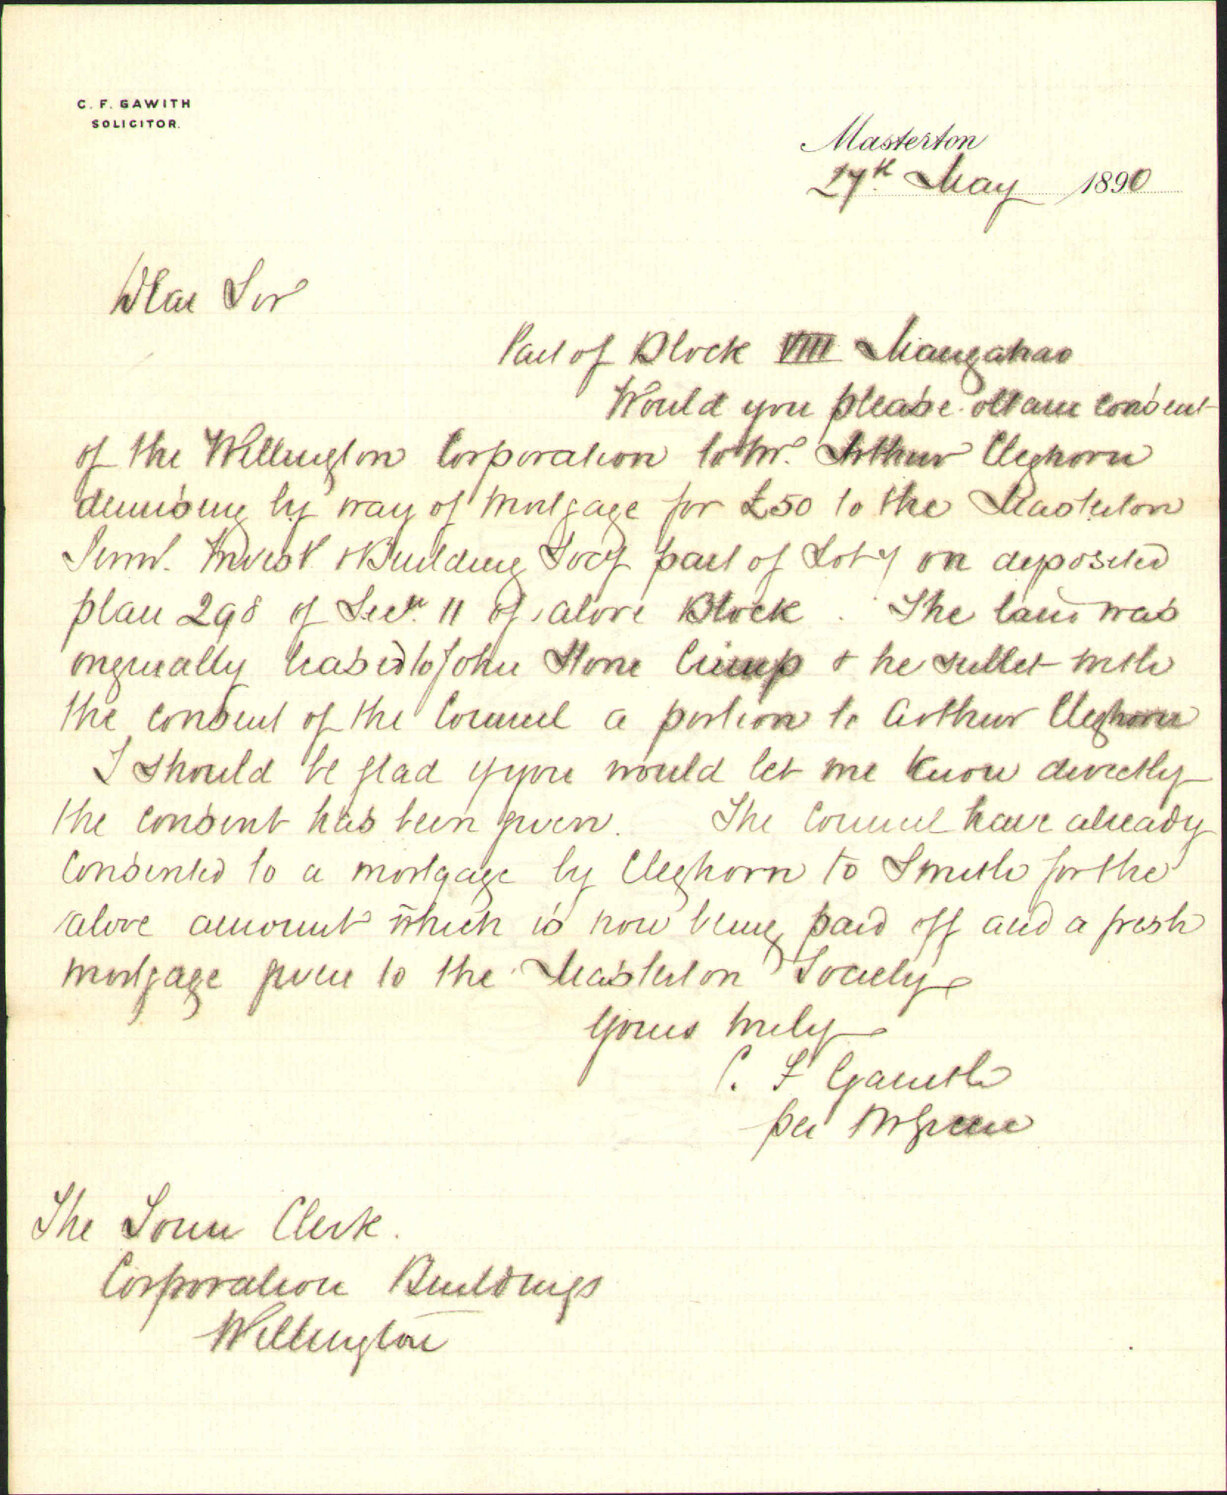 C. F. GAWITH
SOLICITOR.
Masterton
27th May 1890
Dear Sir
Part of Block VIII Mangahao
Would you please obtain consent
of the Wellington Corporation to Mr. Arthur Cleghorn
demising by way of mortgage for £50 to the Masterton
Permt. Invest & Building Socy part of Lot on deposited
plan 298 of Secn. 11 of above Block. The land was
originally leased to John Stone Crump & he sublet with
the consent of the Council a portion to Arthur Cleghorn
I should be glad if you would let me know directly
the consent has been given. The Council have already
consented to a mortgage by Cleghorn to Smith for the
above amount which is now being paid off and a fresh
mortgage given to the Masterton Society
Yours truly
C. F Gawith
per Green
The Town Clerk.
Corporation Buildings
Wellington